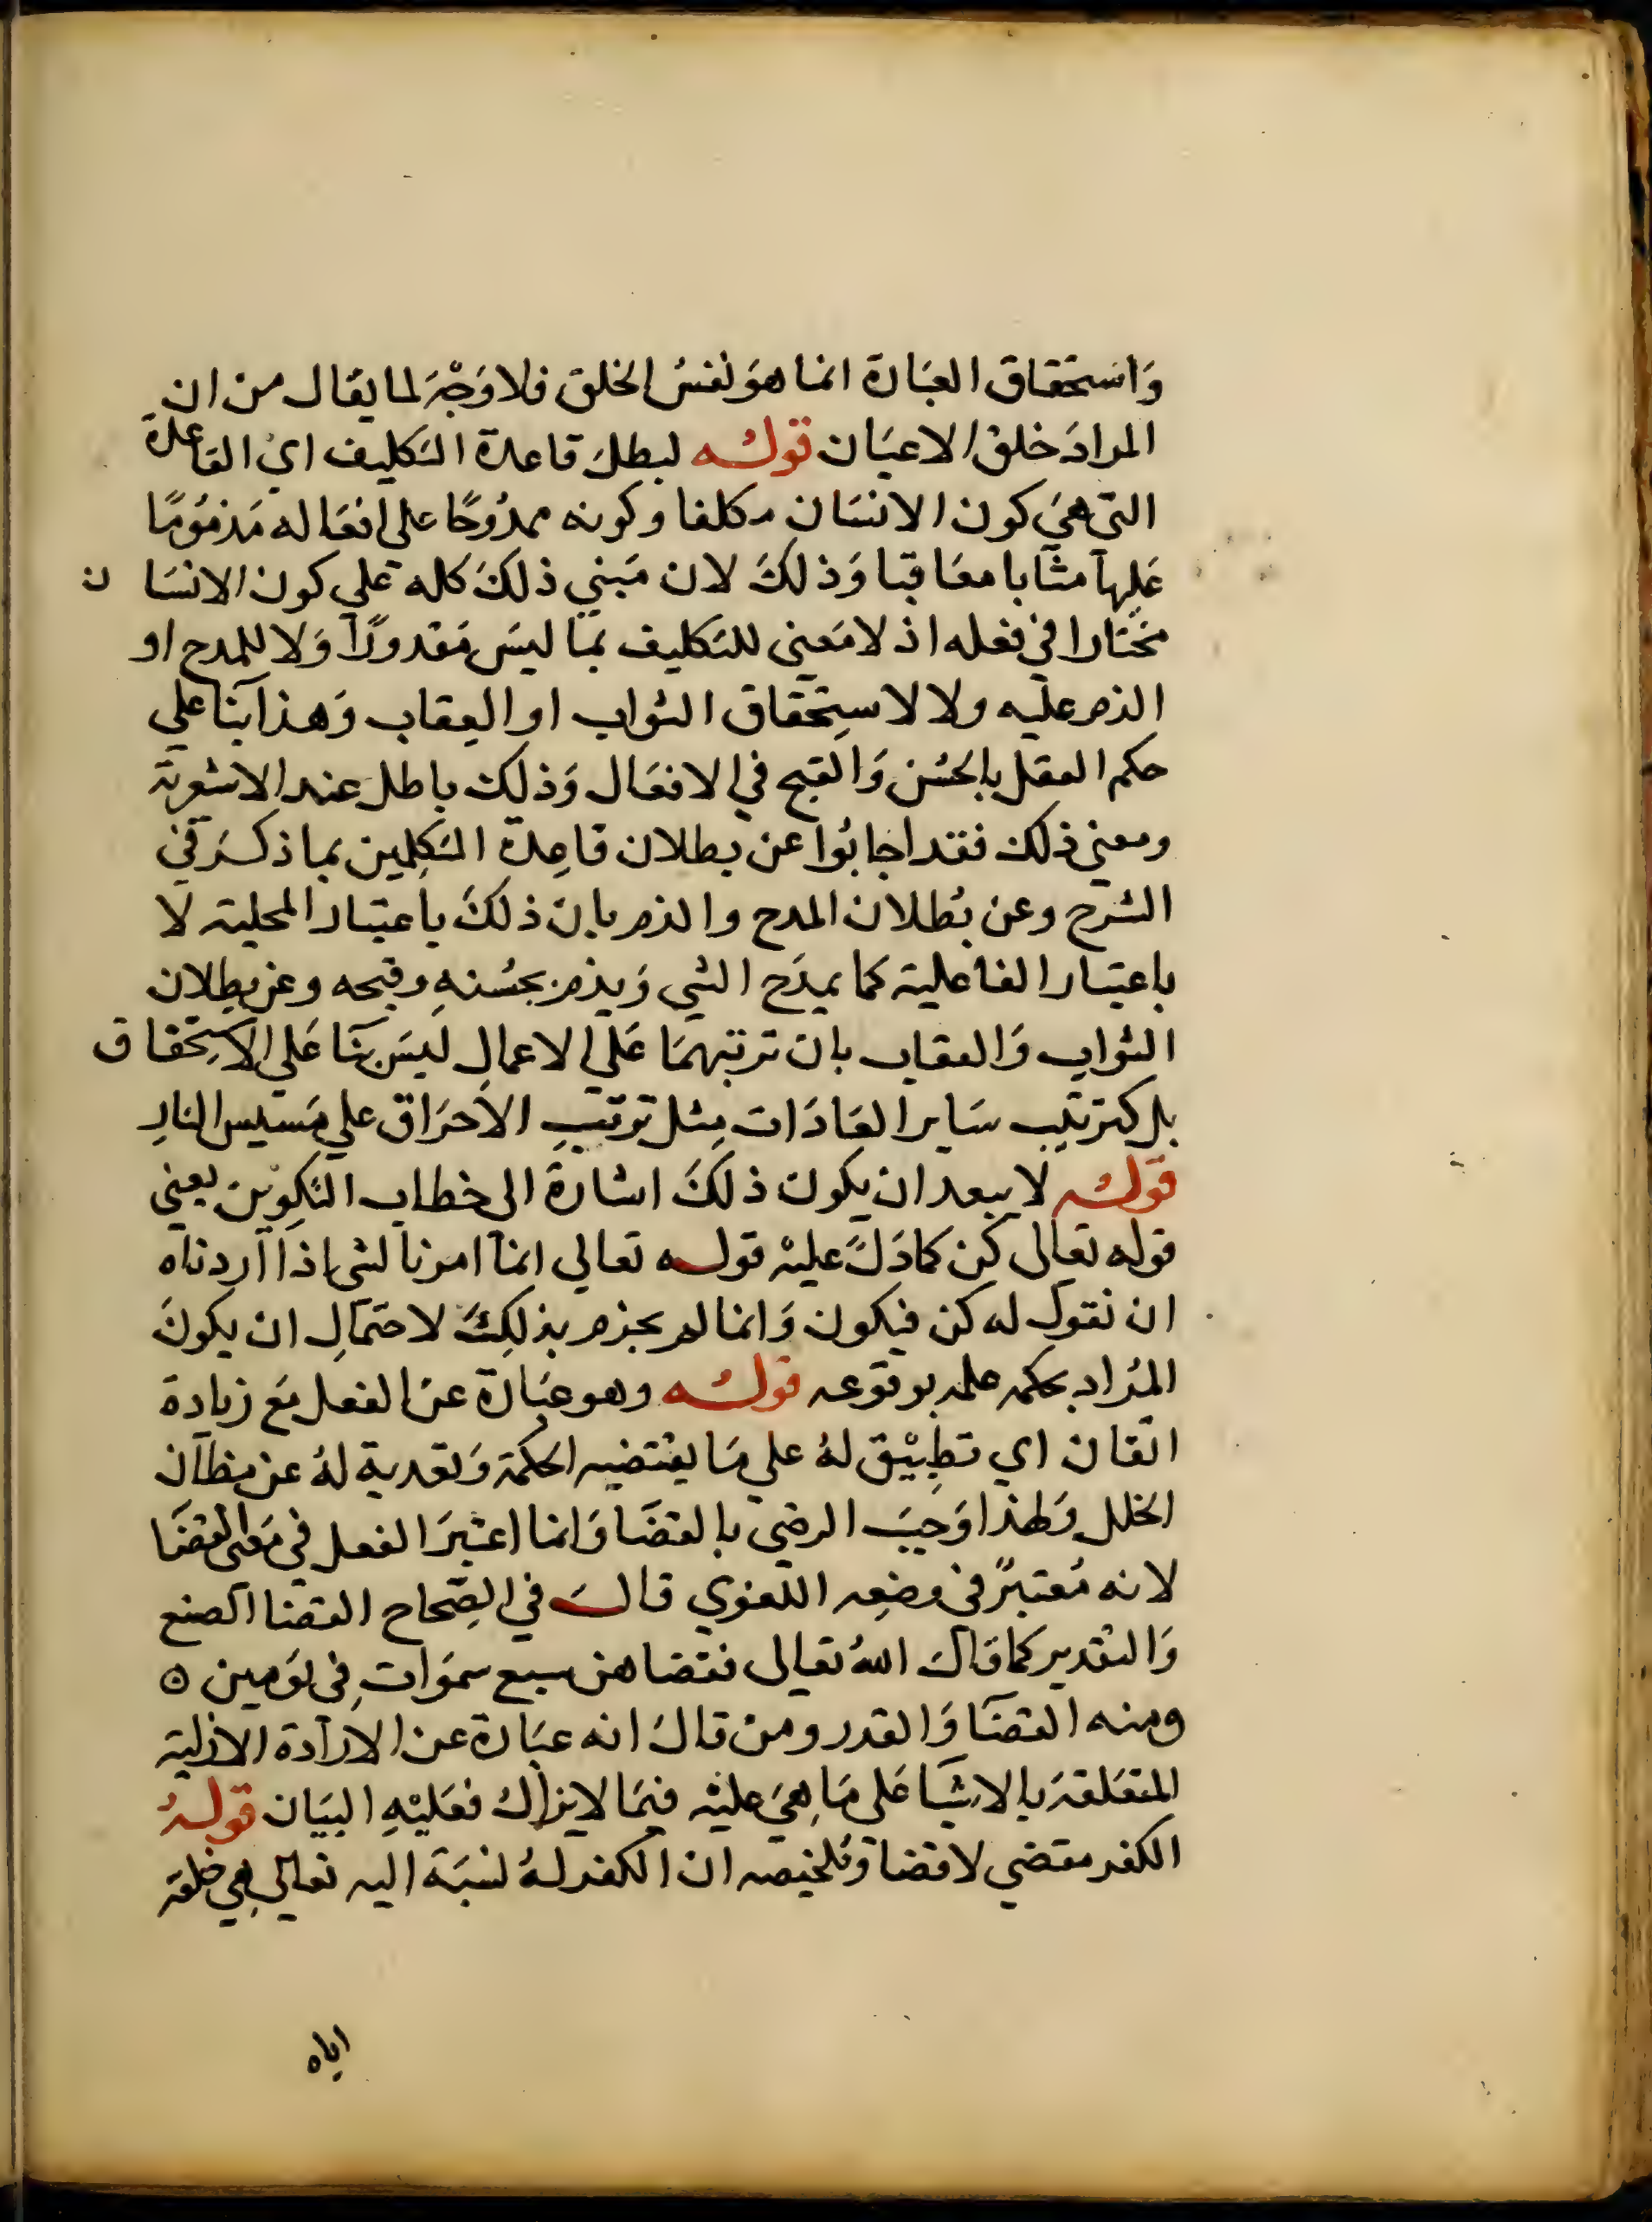 وَاستحقاق العبَادة انما هوَ نفسُ الخلق فلا وَجْهَ لما يقال من ان
المرادَ خلقُ الاعيَان قولـه لبطلَ قاعدة التكليف ايُ القاعدة
التى هيَ كون الانسَان مكلفا وكونه ممدُوحًا على افعَاله مَذمُومًا
عَليهَا مثابا معَاقبا وَذلكَ لان مَبني ذلكَ كله عَلي كون الانسَان
مختَارا في فعله اذ لا مَعني للتكليف بمَا ليسَ مَقدورًا وَلا للمدح او
الذم عليه ولا لاستِحقاق الثواب او العقاب وَهذا بنا علي
حكم العقل بالحسُن وَالقبح في الافعَال وَذلك باطل عند الاشعرية
ومعني ذلك فقد اجابُوا عن بطلان قاعِدة المتكلِمين بما ذكرَ في
الشرح وعن بُطلان المدح والذم بان ذلكَ باعتبار المحلية لا
باعتبار الفاعلية كما يمدَح الشي وَيذم بحسُنهِ وقبحه وعن بطلان
الثواب وَالعقاب بان ترتبهمَا عَلي الاعمالِ ليسَ بنَا عَلي الاستِحقاق
بل كترتيب سَاير العَادَات مِثل ترتيبِ الاحرَاق علي مَسيس النارِ
قولـه لا يبعد ان يكون ذلكَ اشارة الى خطاب التكوين يعني
قوله تعَالى كن كما دَلَّ عليْه قولـه تعالي انما امرنا لشى اذا اردناه
ان نقولَ له كن فيكون وَانما لم يجزم بذلِكَ لاحتمالِ ان يكونَ
المرُاد بحكمه علمه بوقوعه قولـه وهو عبَارة عن الفعل مَع زيادة
اتقان اي تطبِيْق لهُ علي مَا يقتضيه الحكمة وَتعدية لهُ عن مظان
الخلل وَلهذا وَجبَ الرضي بالقضَا وَانما اعتُبرَ الفعل في مَعنى القضَا
لانه مُعتبرٌ في وضعِه اللغوي قالَ في الصِّحاح القضا الصنع
وَالتقدير كما قالَ اللهُ تعَالى فقضاهن سبع سموَات في يوَمين ه
ومنه القضَا وَالقدر ومن قالَ انه عبَارة عن الارَادة الازلية
المتعَلقة بالاشيَا عَلى مَا هيَ عليْه فيمَا لا يزالُ فعَليْهِ البيَان قولهُ
الكفر مقضي لا قضا وَتلخيصه ان الكفر لهُ نسبَة اليه تعالي هي خلقه
اياه